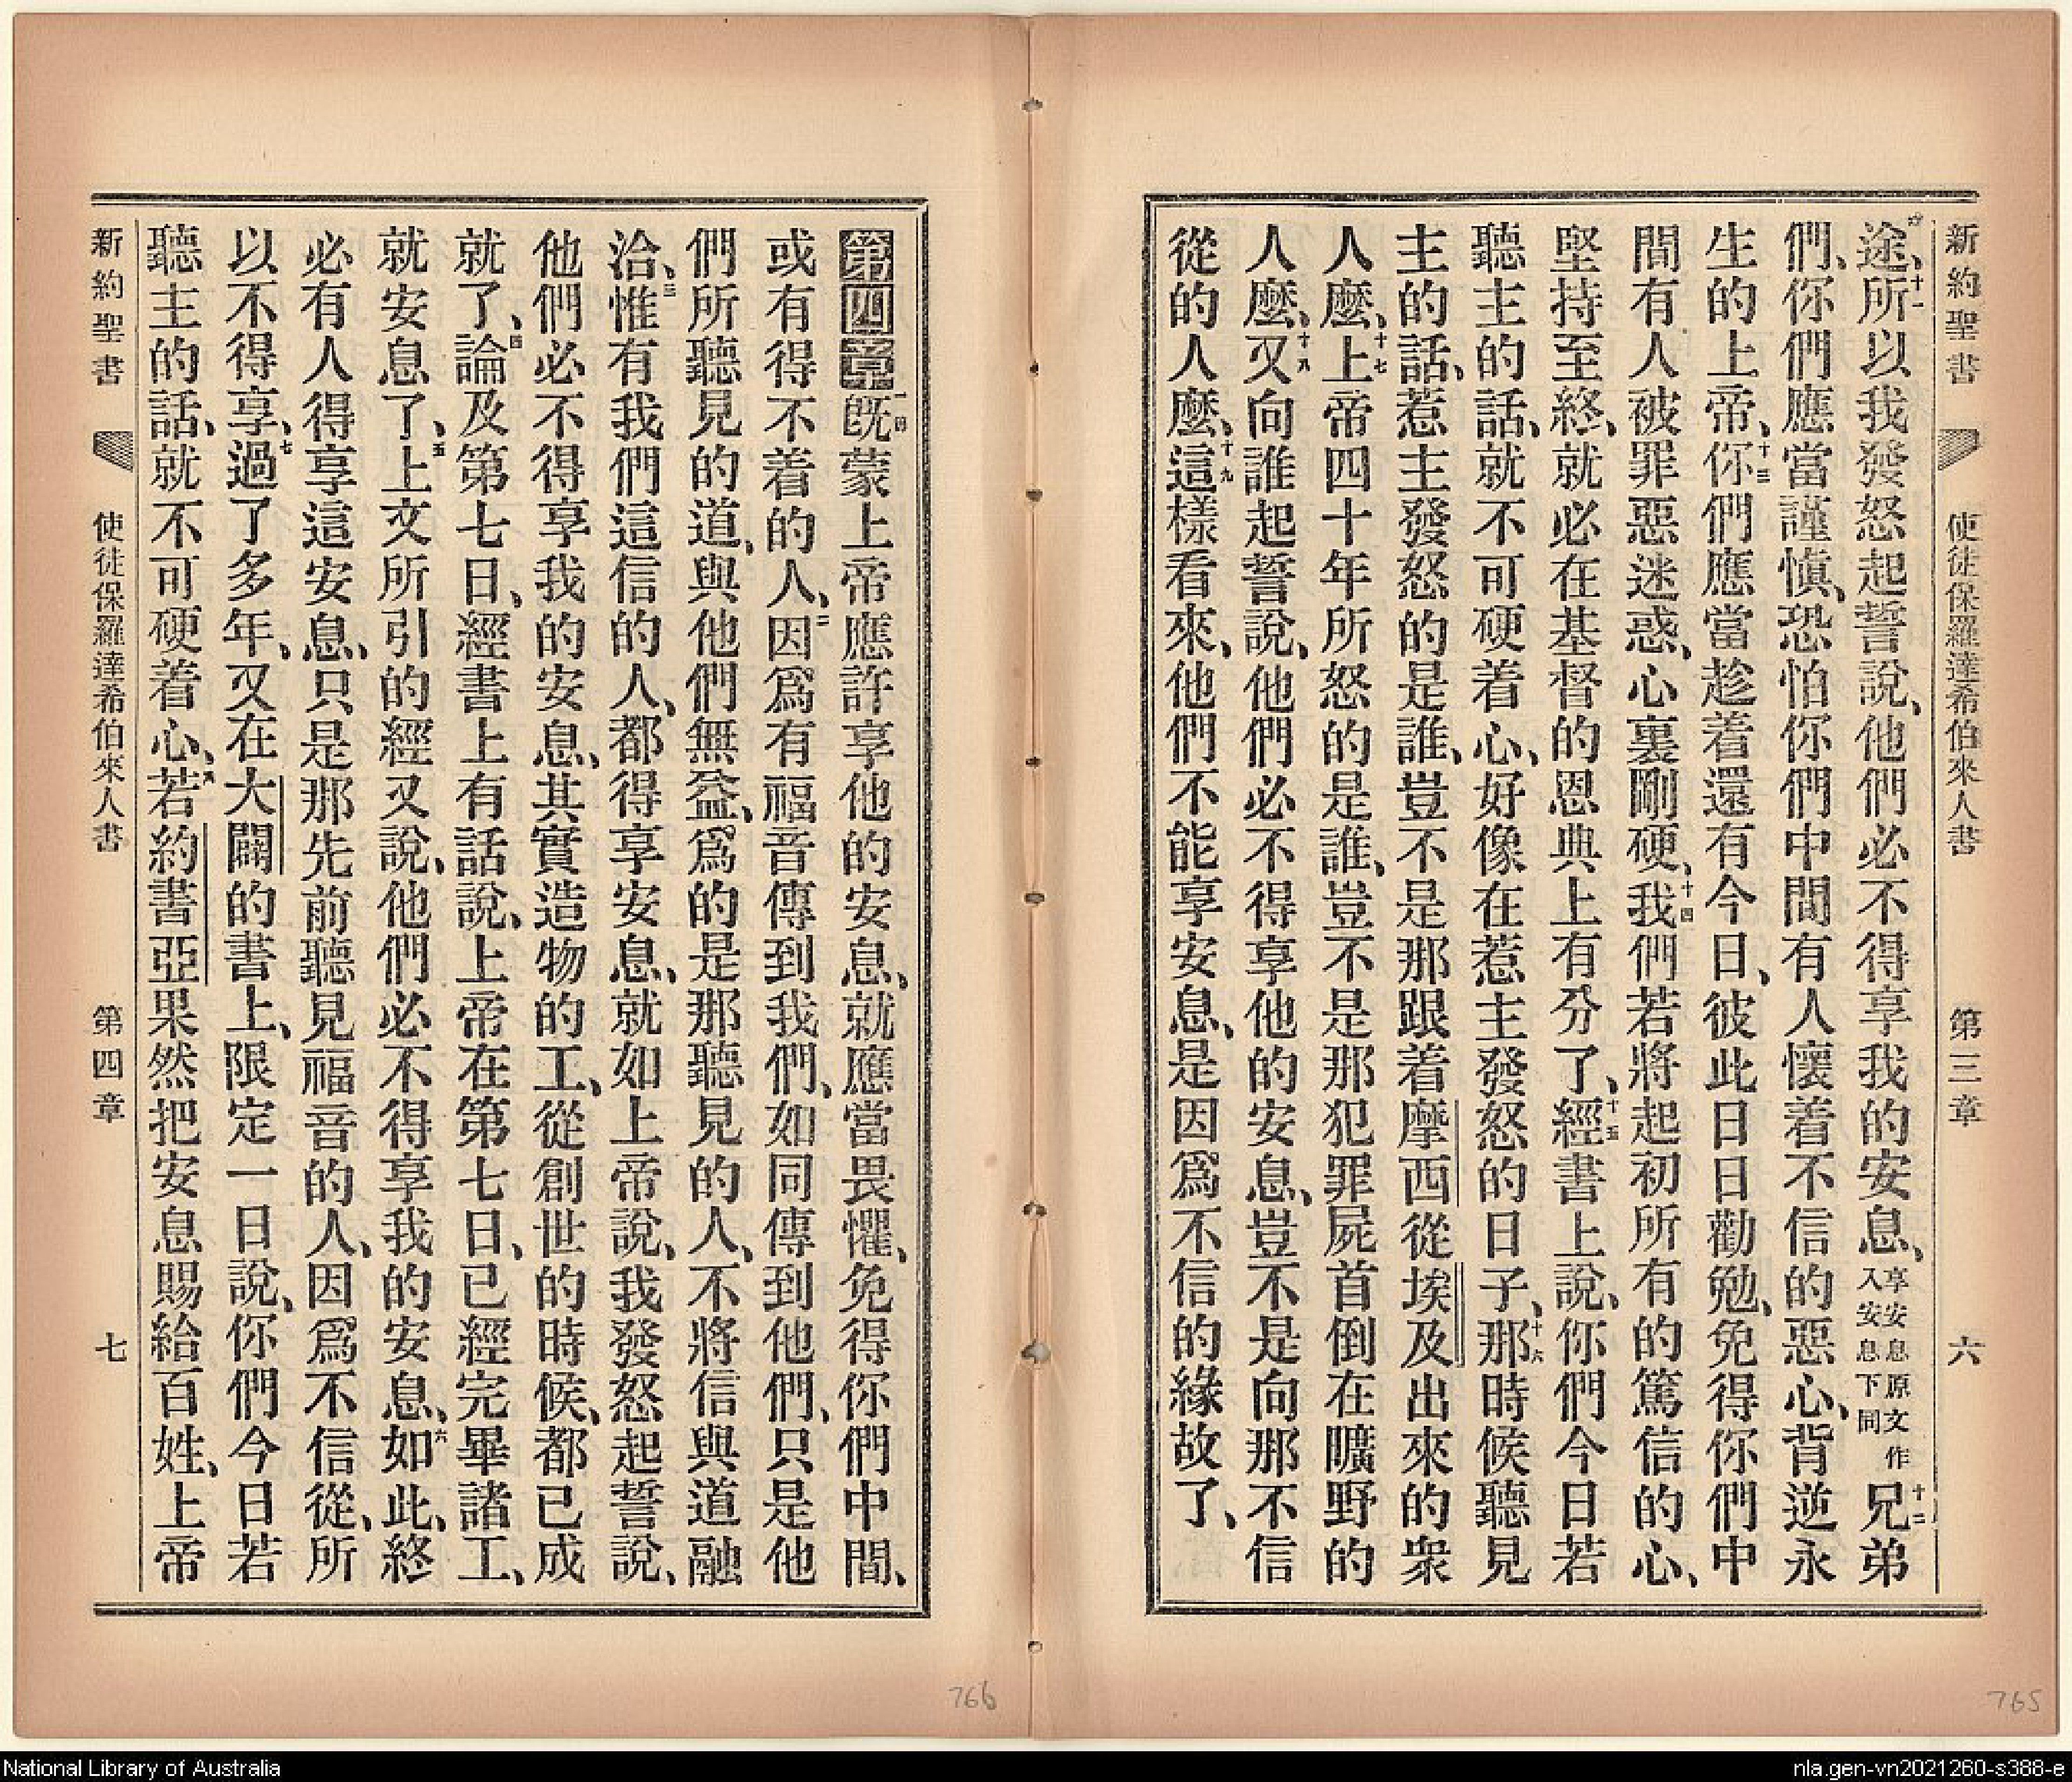 新約聖書 使徒保羅達希伯來人書 第三章 六
途、十一所以我發怒起誓說、他們必不得享我的安息、享安息原文作入安息下同十二兄弟
們、你們應當謹慎、恐怕你們中間有人懷着不信的惡心、背逆永
生的上帝、十三你們應當趁着還有今日、彼此日日勸勉、免得你們中
間有人被罪惡迷惑、心裏剛硬、十四我們若將起初所有的篤信的心、
堅持至終、就必在基督的恩典上有分了、十五經書上說、你們今日若
聽主的話、就不可硬着心、好像在惹主發怒的日子、十六那時候聽見
主的話、惹主發怒的是誰、豈不是那跟着摩西從埃及出來的衆
人麼、十七上帝四十年所怒的是誰、豈不是那犯罪屍首倒在曠野的
人麼、十八又向誰起誓說、他們必不得享他的安息、豈不是向那不信
從的人麼、十九這樣看來、他們不能享安息、是因爲不信的緣故了、
765
第四章一旣蒙上帝應許享他的安息、就應當畏懼、免得你們中間、
或有得不着的人、二因爲有福音傳到我們、如同傳到他們、只是他
們所聽見的道、與他們無益、爲的是那聽見的人、不將信與道融
洽、三惟有我們這信的人、都得享安息、就如上帝說、我發怒起誓說、
他們必不得享我的安息、其實造物的工、從創世的時候、都已成
就了、四論及第七日、經書上有話說、上帝在第七日、已經完畢諸工、
就安息了、五上文所引的經又說、他們必不得享我的安息、六如此、終
必有人得享這安息、只是那先前聽見福音的人、因爲不信從、所
以不得享、七過了多年、又在大闢的書上、限定一日說、你們今日若
聽主的話、就不可硬着心、八若約書亞果然把安息賜給百姓、上帝
新約聖書 使徒保羅達希伯來人書 第四章 七
766
National Library of Australia
nla.gen-vn2021260-s388-e